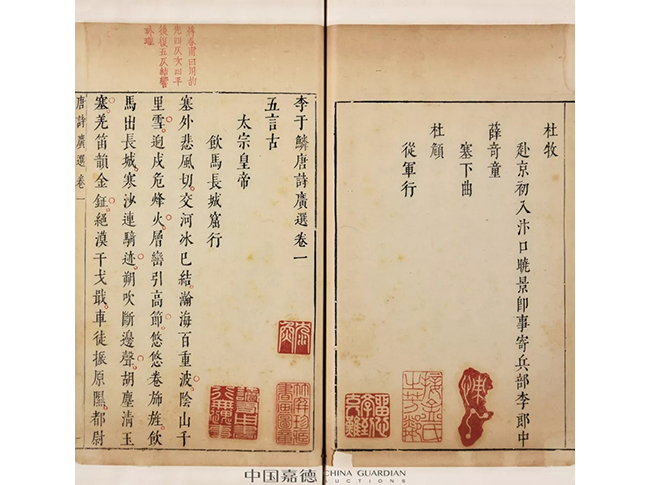 杜牧
赴京初入汴口曉景即事寄兵部李郎中
薛奇童
塞下曲
杜頠
從軍行
李于鱗唐詩廣選卷一
五言古
太宗皇帝
飲馬長城窟行
塞外悲風切交河冰已結瀚海百重波陰山千
里雪迥戍危烽火層巒引高節悠悠卷旆旌飲
馬出長城寒沙連騎迹朔吹斷邊聲胡塵清玉
塞羌笛韻金鉦絕漠干戈戢車徒振原隰都尉
唐詩廣選 卷一
先四仄次四平
中国嘉德 CHINA GUARDIAN
AUCTIONS